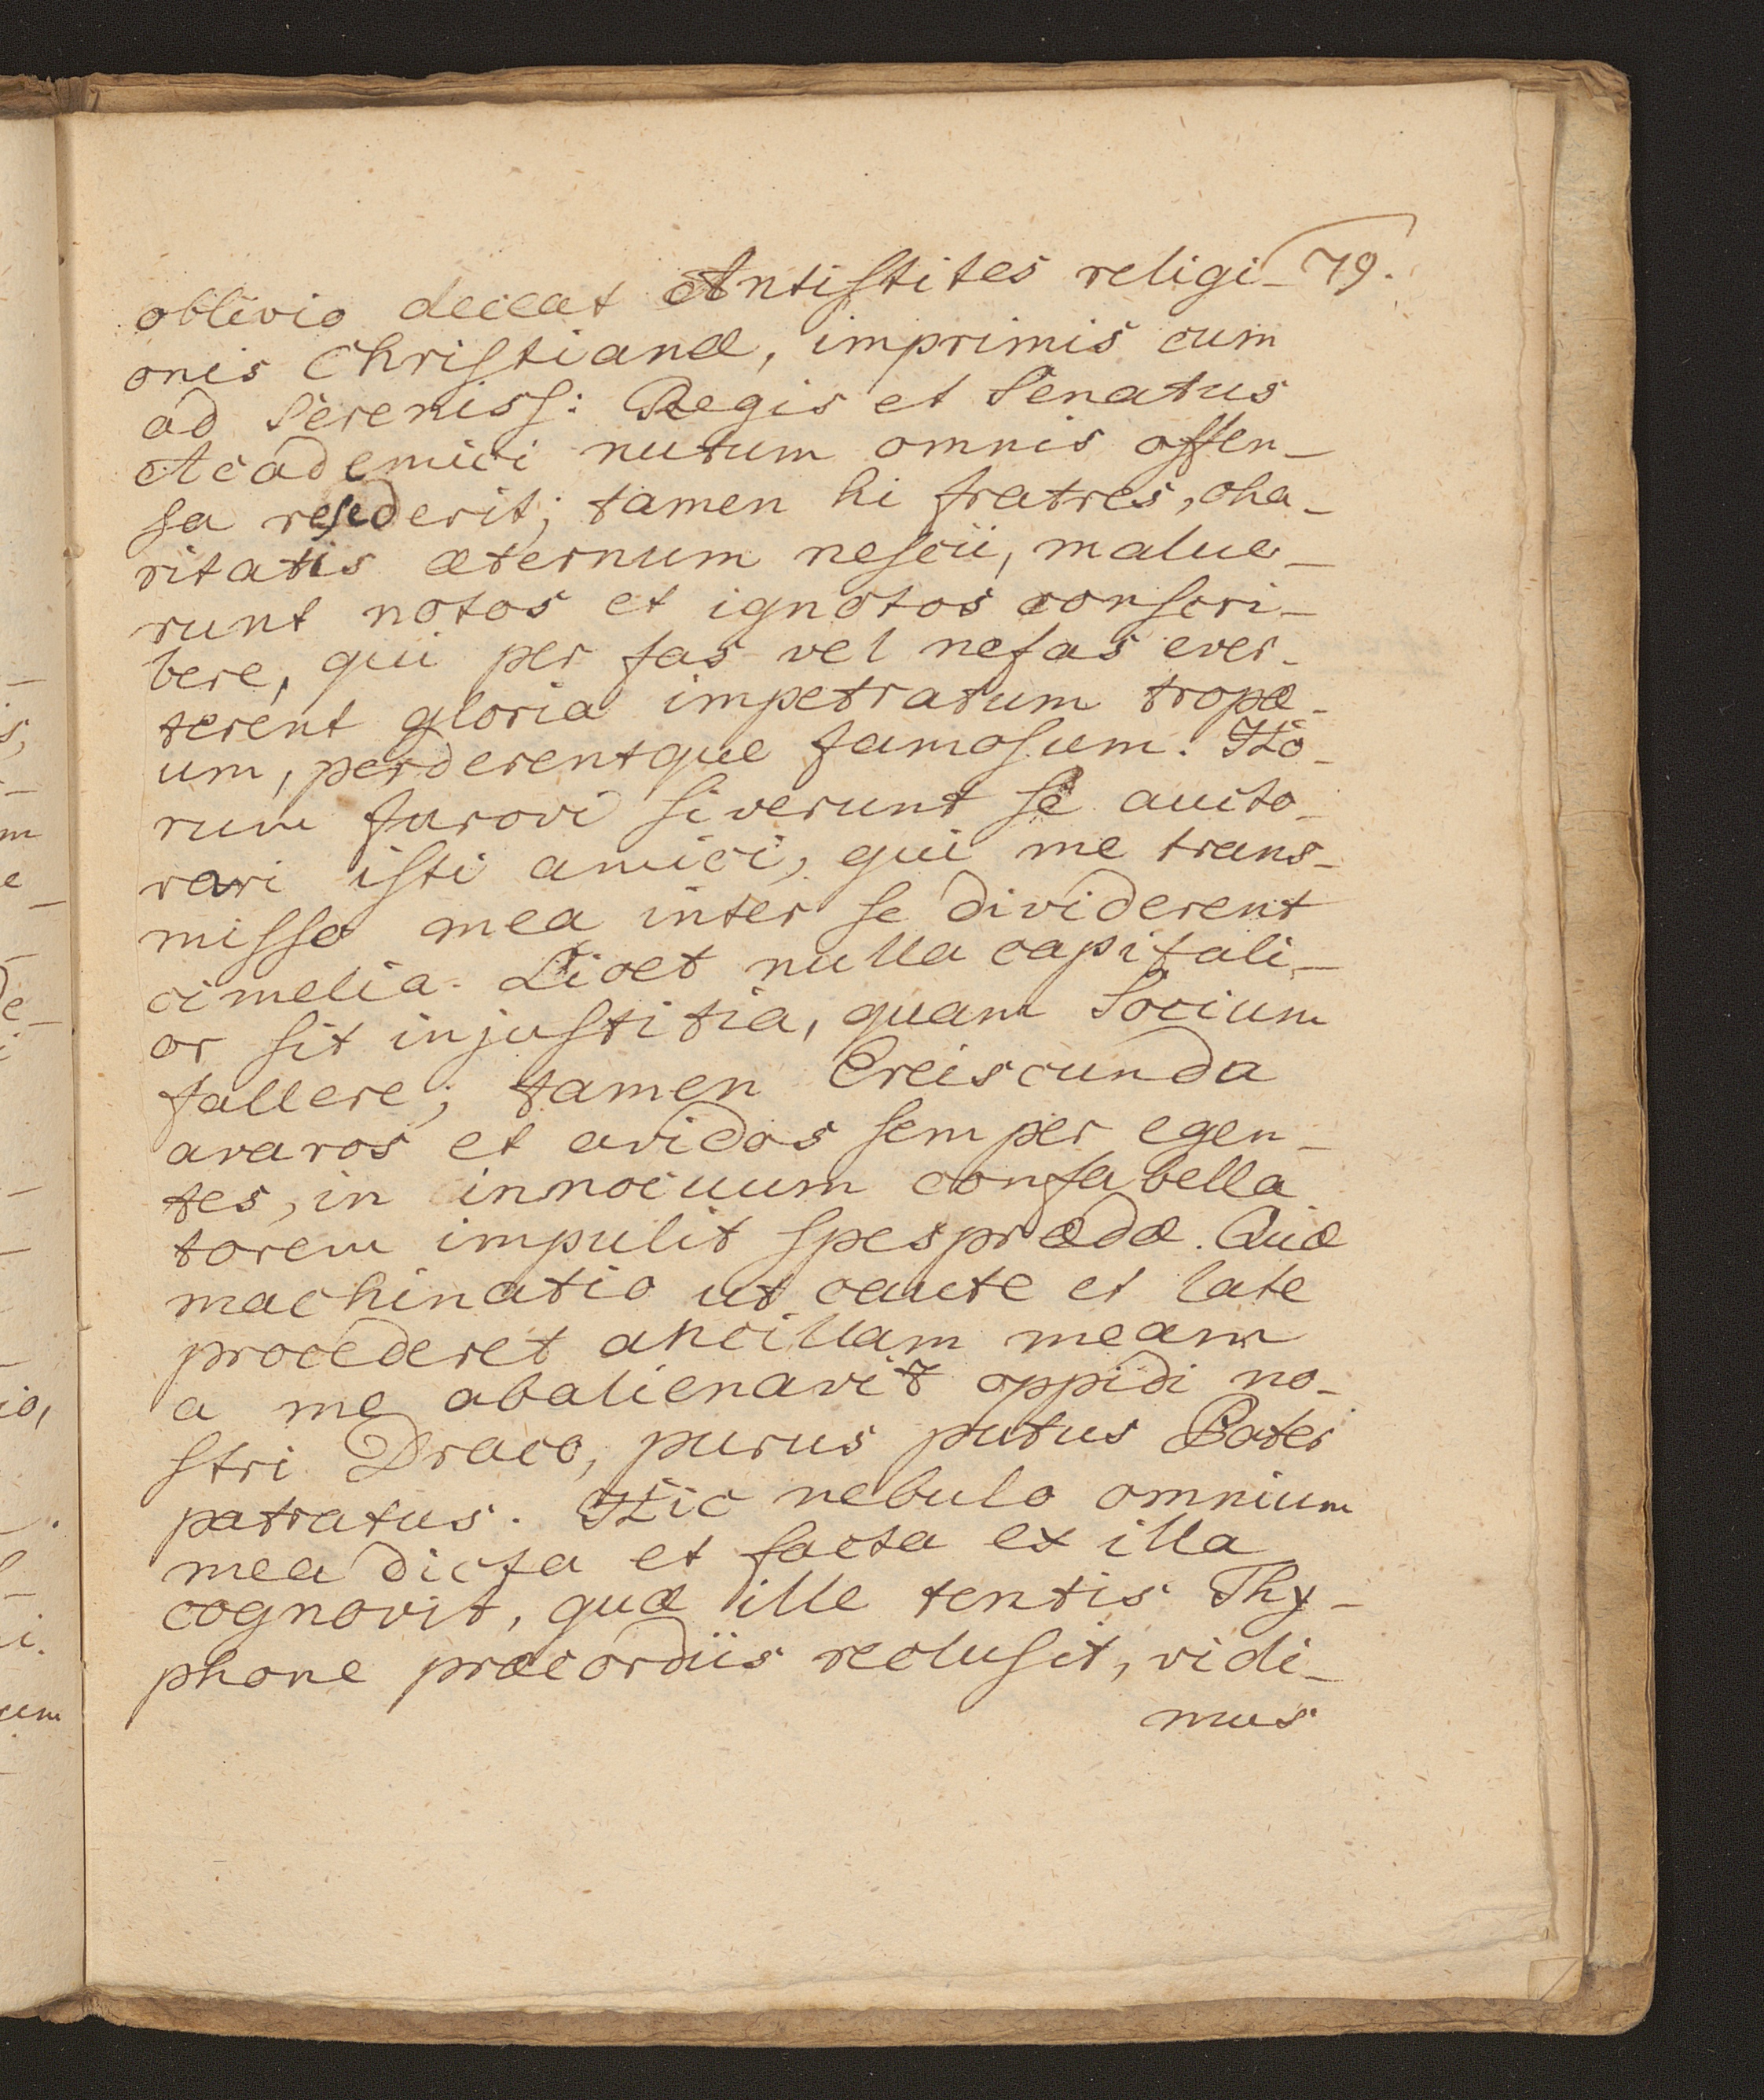 79.
oblivio deceat Antistites religi-
onis Christianæ, imprimis cum
ad Sereniss: Regis et Senatus
Academici nutum omnis offen-
sa resederit; tamen hi fratres, cha-
ritatis æternum nescii, malue-
runt notos et ignotos conscri-
bere, qui per fas vel nefas ever-
terent gloria impetratum tropæ-
um, perderentque famosum. Ho-
rum furori siverunt se aucto-
rari isti amici, qui me trans-
misso mea inter se dividerent
cimelia. Licet nulla capitali-
or sit injustitia, quam Socium
fallere; tamen Erciscunda
avaros et avidos semper egen-
tes, in innocuum confabella
torem impulit spes prædæ. Quæ
machinatio ut caute et late
procederet ancillam meam
a me abalienavit oppidi no-
stri Draco, purus putus Pater
patratus. Hic nebulo omnium
mea dicta et facta ex illa
cognovit, quæ ille tentis Thy-
phone præcordiis reclusit, vidi-
mus